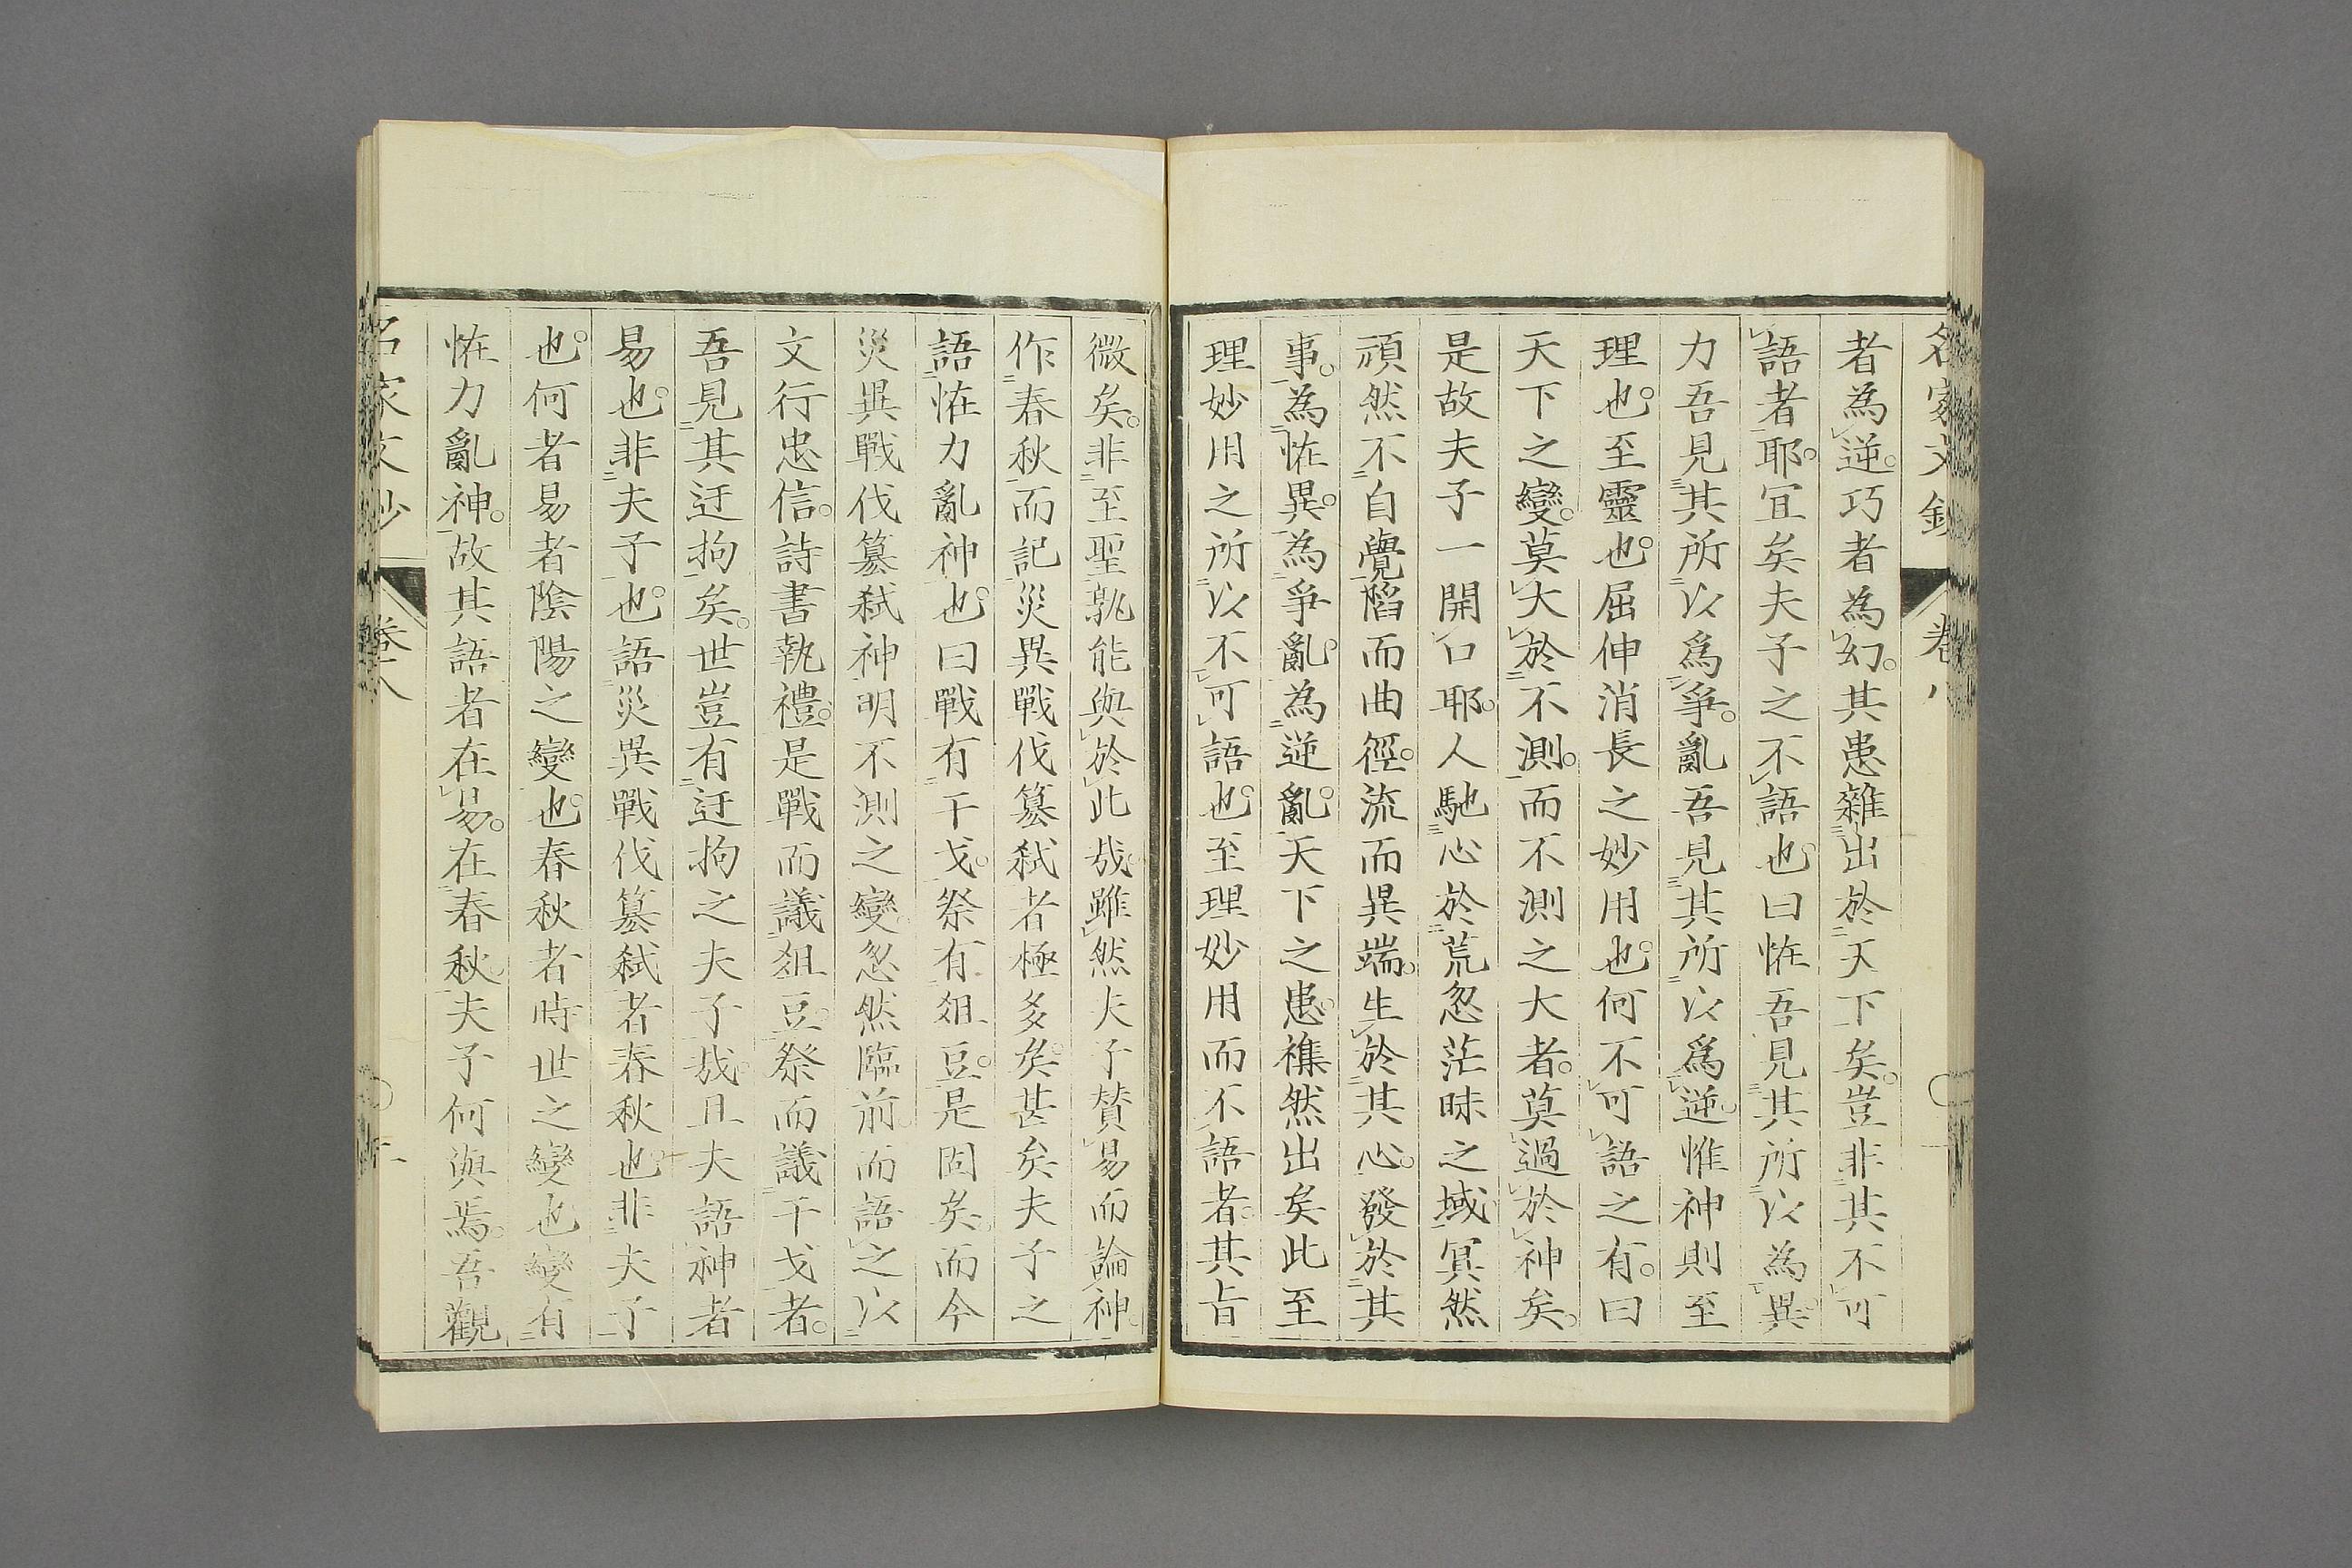 名家文鈔
卷八
者為逆巧者為幻其患雜出於天下矣豈非其不可
語者耶宜矣夫子之不語也曰恠吾見其所以為異
力吾見其所以爲爭亂吾見其所以爲逆惟神則至
理也至靈也屈伸消長之妙用也何不可語之有曰
天下之變莫大於不測而不測之大者莫過於神矣
是故夫子一開口耶人馳心於荒忽茫昧之域冥然
頑然不自覺陷而曲徑流而異端生於其心發於其
事為恠異為爭亂為逆亂天下之患襍然出矣此至
理妙用之所以不可語也至理妙用而不語者其旨
微矣非至聖孰能與於此哉雖然夫子賛易而論神
作春秋而記災異戰伐篡弑者極多矣甚矣夫子之
語恠力亂神也曰戰有干戈祭有俎豆是固矣而今
災異戰伐篡弑神明不測之變忽然臨前而語之以
文行忠信詩書執禮是戰而議俎豆祭而議干戈者
吾見其迂拘矣世豈有迂拘之夫子哉且夫語神者
易也非夫子也語災異戰伐篡弑者春秋也非夫子
也何者易者陰陽之變也春秋者時世之變也變有
恠力亂神故其語者在易在春秋夫子何與焉吾觀
名家文鈔
卷八